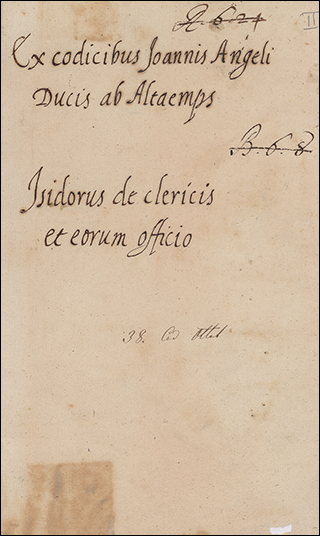 Q. 6. 24
II
Ex codicibus Joannis Angeli
Ducis ab Altaemps
B. 6. 8
Isidorus de clericis
et eorum officio
38. Cod Ottob